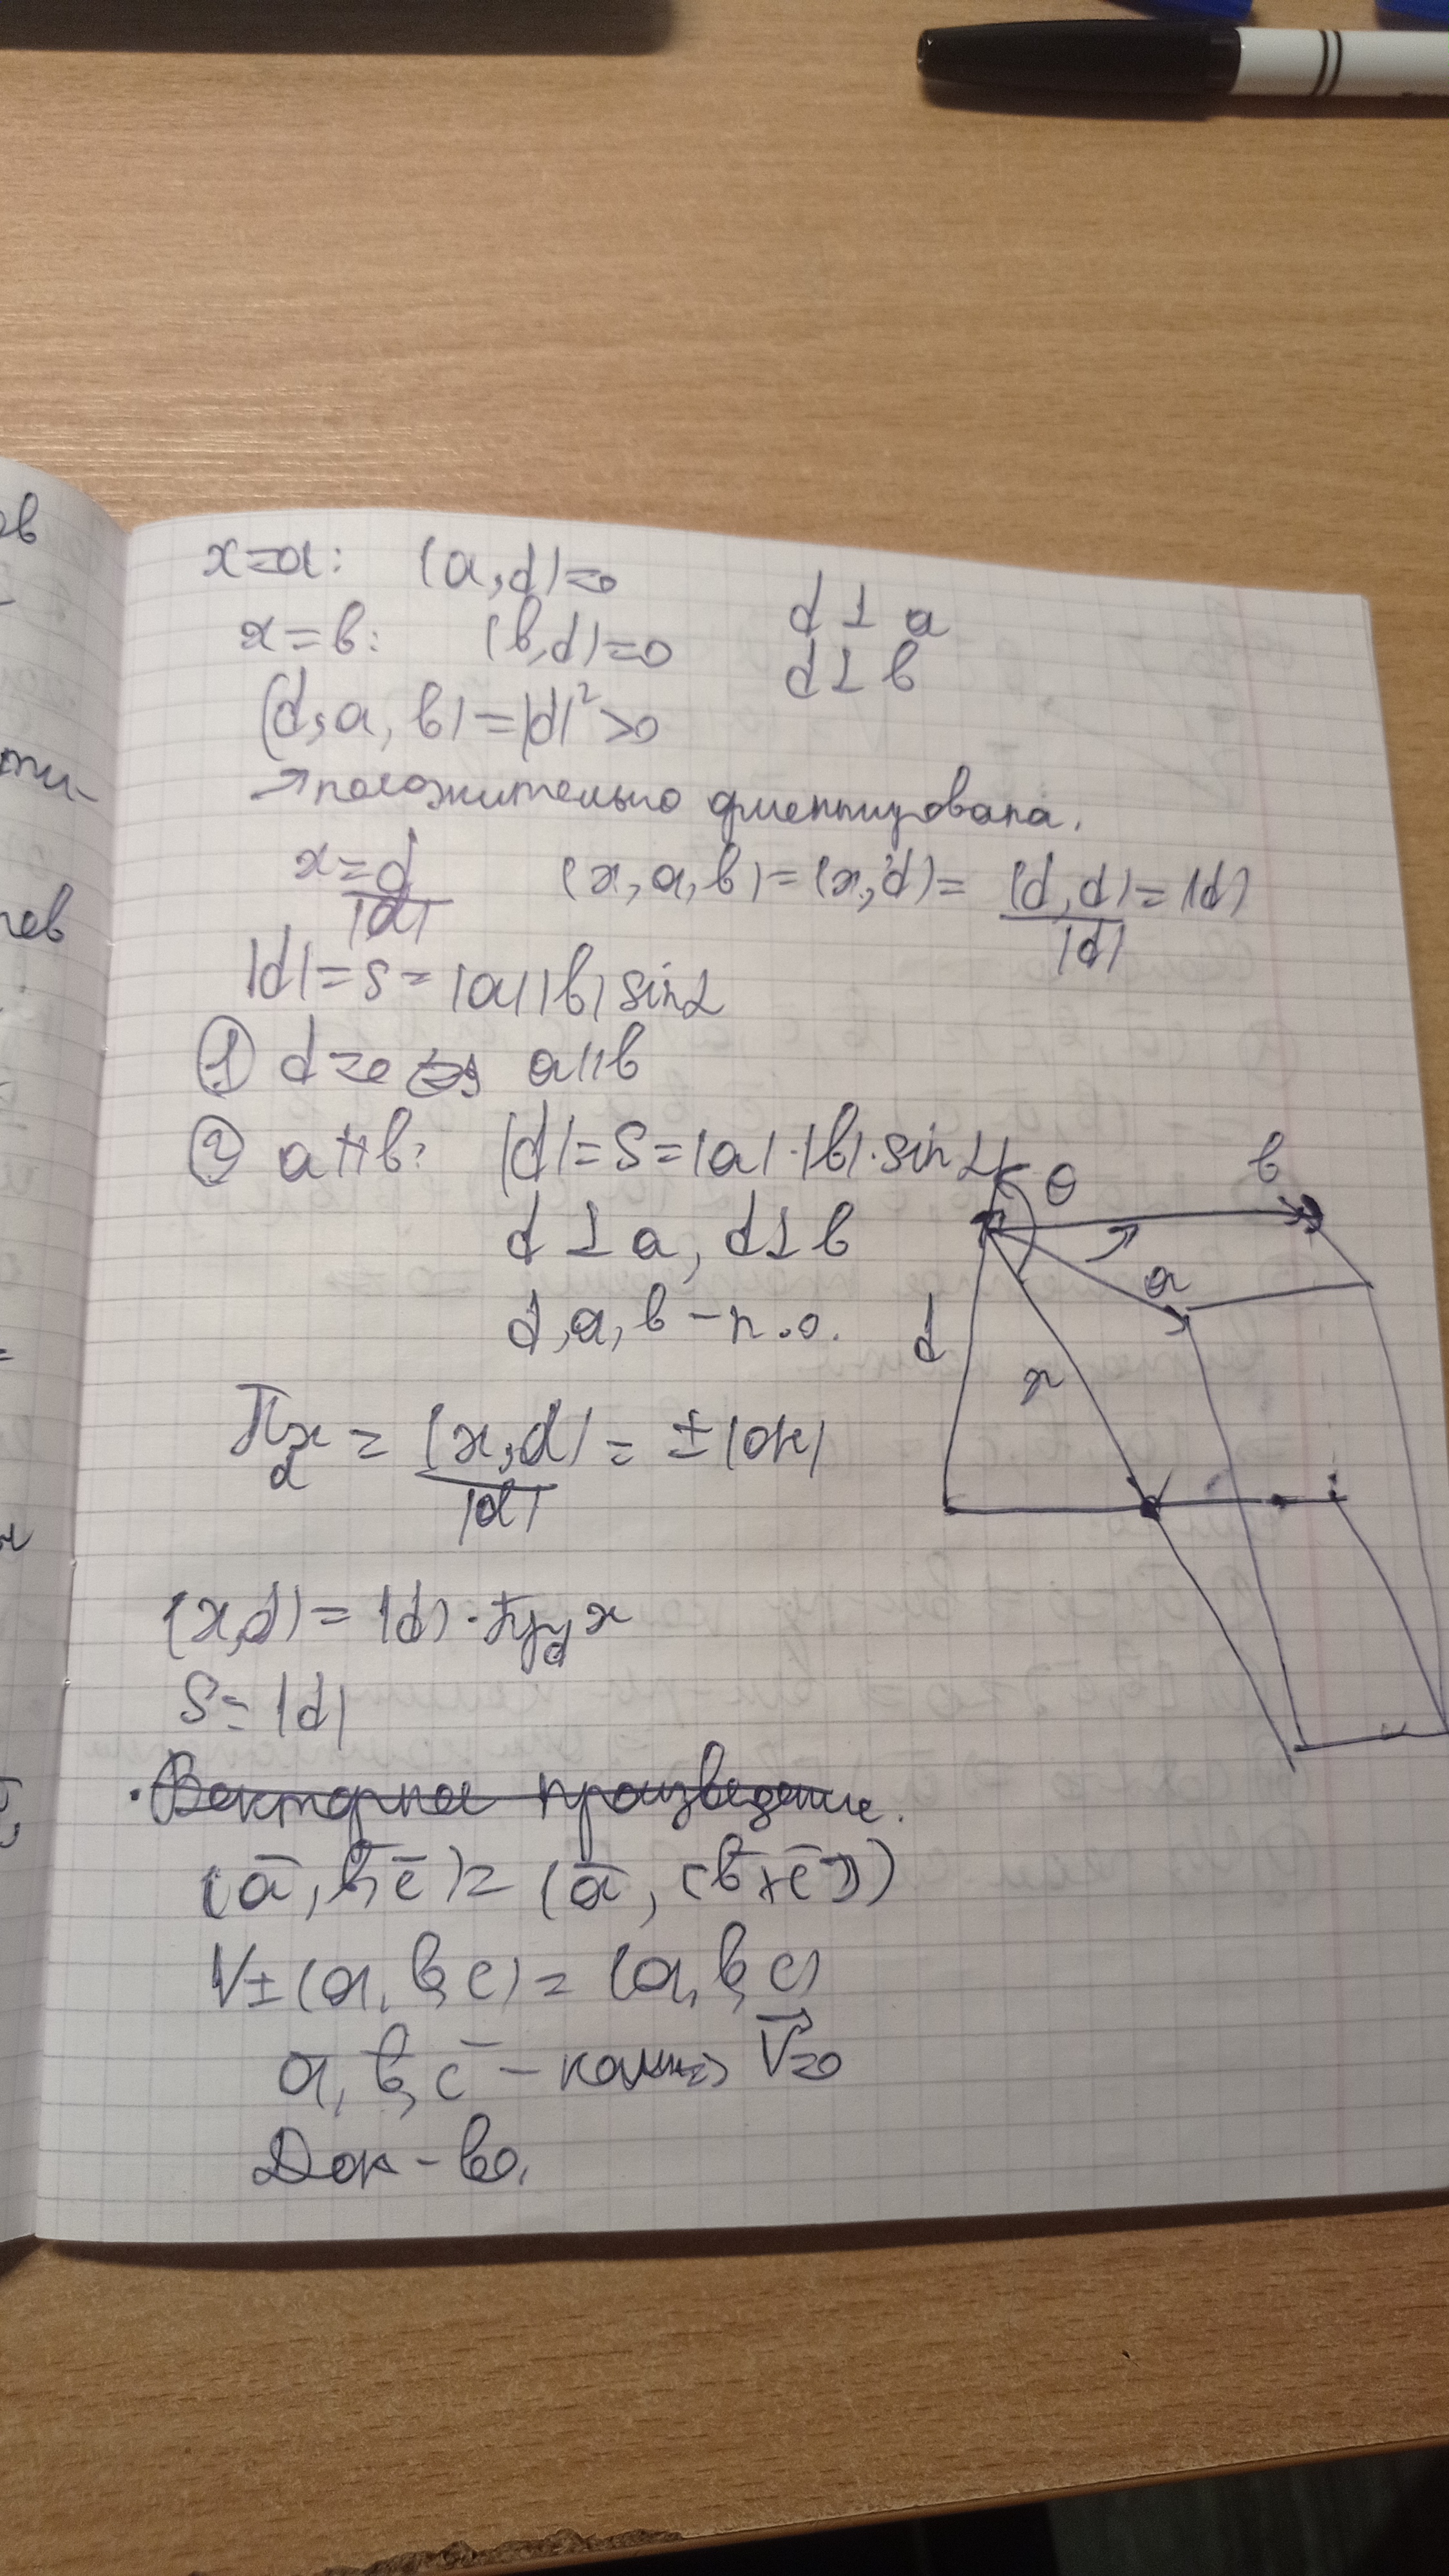 x=a: (a,d)=0 d⊥a
x=b: (b,d)=0 d⊥b
(d,a,b)=|d|²>0
→ положительно ориентирована.
x=d/|d| (x,a,b)=(x,d)=(d,d)/|d|=|d|
|d|=S=|a||b|sinα
① d=0 ⇔ a||b
② a∦b: |d|=S=|a|·|b|·sinα
d⊥a, d⊥b
d,a,b – п.о.
θ
b
a
d
x
(x,d)/|d| = ±|OK|
(x,d)=|d|·пр_d x
S=|d|
Векторное произведение.
(a̅,b̅,c̅)=(a̅,[b̅×c̅])
V±(a,b,c)=(a,b,c)
a̅,b̅,c̅ – компл ⇒ V=0
Док-во.